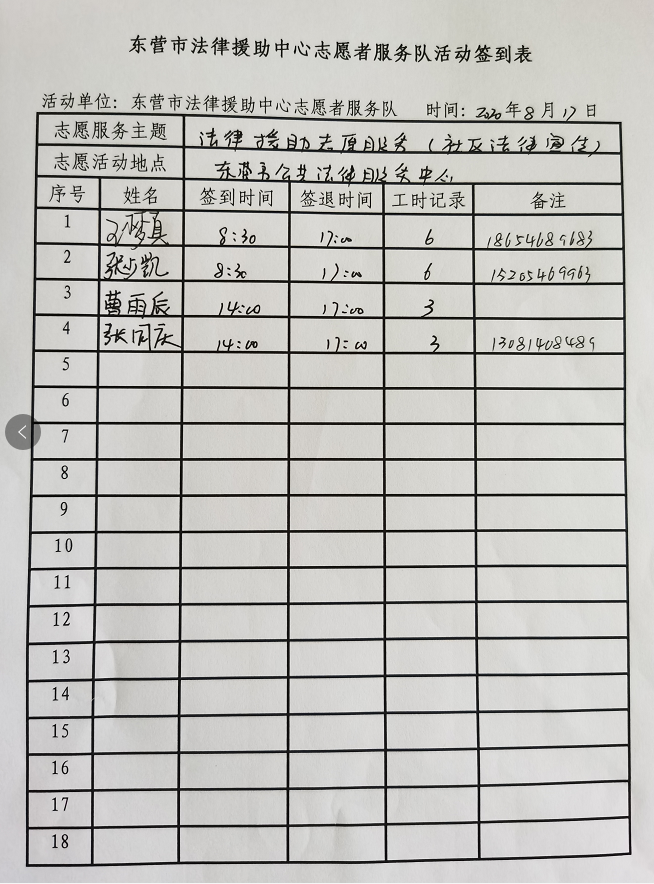 东营市法律援助中心志愿者服务队活动签到表
活动单位：东营市法律援助中心志愿者服务队 时间：2020年8月17日
志愿服务主题 法律援助志愿服务（社区法律宣传）
志愿活动地点 东营市公共法律服务中心
序号 姓名 签到时间 签退时间 工时记录 备注
1 梦真 8:30 17:00 6 18654689683
2 张步凯 8:30 17:00 6 15205469963
3 曹雨辰 14:00 17:00 3
4 张同庆 14:00 17:00 3 13081408489
5
6
7
8
9
10
11
12
13
14
15
16
17
18